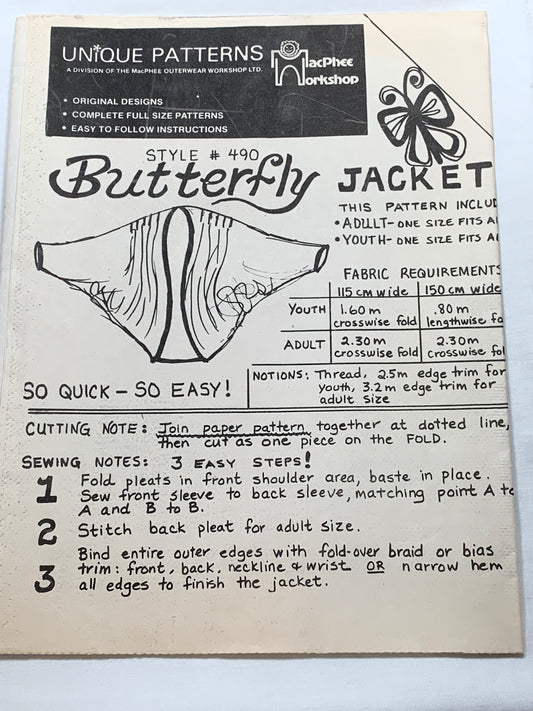 UNiQUE PATTERNS
A DIVISION OF THE MacPHEE OUTERWEAR WORKSHOP LTD.
MacPhee
Workshop
• ORIGINAL DESIGNS
• COMPLETE FULL SIZE PATTERNS
• EASY TO FOLLOW INSTRUCTIONS
STYLE # 490
Butterfly JACKET
THIS PATTERN INCLUD
• ADULT - ONE SIZE FITS
• YOUTH - ONE SIZE FITS
FABRIC REQUIREMENTS
115 cm wide 150 cm wide
YOUTH 1.60 m crosswise fold .80 m lengthwise fo
ADULT 2.30 m crosswise fold 2.30 m crosswise fol
SO QUICK - SO EASY!
NOTIONS: Thread, 2.5m edge trim for
youth, 3.2m edge trim for
adult size
CUTTING NOTE: Join paper pattern together at dotted line,
then cut as one piece on the FOLD.
SEWING NOTES: 3 EASY STEPS!
1 Fold pleats in front shoulder area, baste in place.
Sew front sleeve to back sleeve, matching point A to
A and B to B.
2 Stitch back pleat for adult size.
3 Bind entire outer edges with fold-over braid or bias
trim: front, back, neckline & wrist OR narrow hem
all edges to finish the jacket.